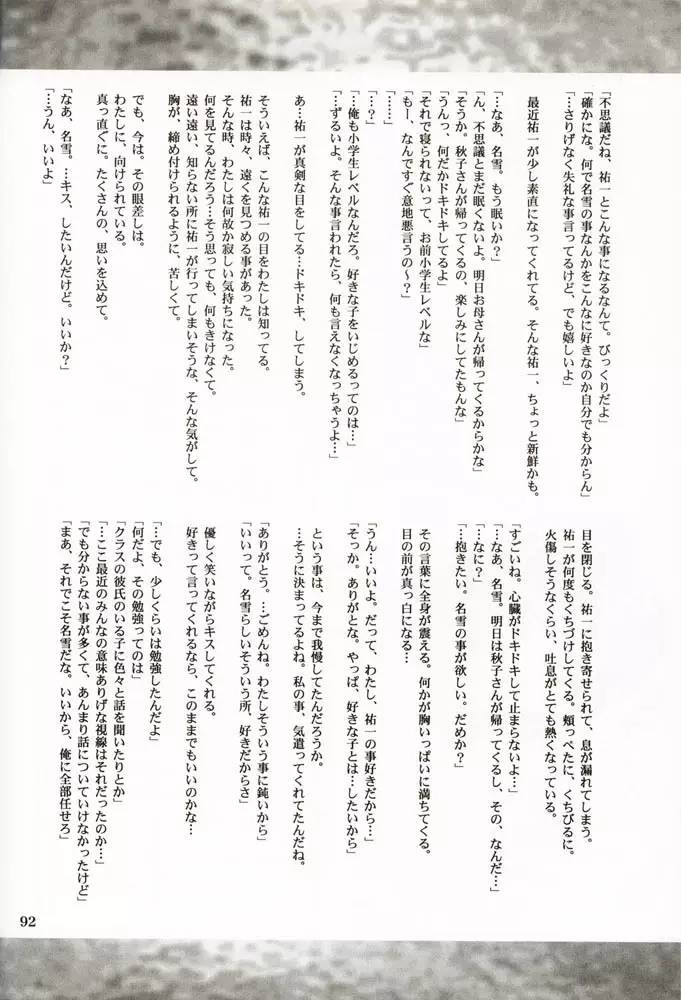 「不思議だね、祐一とこんな事になるなんて。びっくりだよ」
「確かにな。何で名雪の事なんかをこんなに好きなのか自分でも分からん」
「…さりげなく失礼な事言ってるけど、でも嬉しいよ」
最近祐一が少し素直になってくれてる。そんな祐一、ちょっと新鮮かも。
「…なあ、名雪。もう眠いか?」
「ん、不思議とまだ眠くないよ。明日お母さんが帰ってくるからかな」
「そうか。秋子さんが帰ってくるの、楽しみにしてたもんな」
「うんっ、何だかドキドキしてるよ」
「それで寝られないって、お前小学生レベルな」
「もー、なんですぐ意地悪言うの〜?」
「……」
「…?」
「…俺も小学生レベルなんだろ。好きな子をいじめるってのは…」
「…ずるいよ。そんな事言われたら、何も言えなくなっちゃうよ…」
あ…祐一が真剣な目をしてる…ドキドキ、してしまう。
そういえば、こんな祐一の目をわたしは知ってる。
祐一は時々、遠くを見つめる事があった。
そんな時、わたしは何故か寂しい気持ちになった。
何を見てるんだろう…そう思っても、何もきけなくて。
遠い遠い、知らない所に祐一が行ってしまいそうな、そんな気がして。
胸が、締め付けられるように、苦しくて。
でも、今は。その眼差しは。
わたしに、向けられている。
真っ直ぐに。たくさんの、思いを込めて。
「なあ、名雪。…キス、したいんだけど。いいか?」
「…うん、いいよ」
目を閉じる。祐一に抱き寄せられて、息が漏れてしまう。
祐一が何度もくちづけしてくる。頬っぺたに、くちびるに。
火傷しそうなくらい、吐息がとても熱くなっている。
「すごいね。心臓がドキドキして止まらないよ…」
「…なあ、名雪。明日は秋子さんが帰ってくるし、その、なんだ…」
「…なに?」
「…抱きたい。名雪の事が欲しい。だめか?」
その言葉に全身が震える。何かが胸いっぱいに満ちてくる。
目の前が真っ白になる…
「うん…いいよ。だって、わたし、祐一の事好きだから…」
「そっか。ありがとな。やっぱ、好きな子とは…したいから」
という事は、今まで我慢してたんだろうか。
…そうに決まってるよね。私の事、気遣ってくれてたんだね。
「ありがとう。…ごめんね。わたしそういう事に鈍いから」
「いいって。名雪らしいそういう所、好きだからさ」
優しく笑いながらキスしてくれる。
好きって言ってくれるなら、このままでもいいのかな…
「…でも、少しくらいは勉強したんだよ」
「何だよ、その勉強ってのは」
「クラスの彼氏のいる子に色々と話を聞いたりとか」
「…ここ最近のみんなの意味ありげな視線はそれだったのか…」
「でも分からない事が多くて、あんまり話についていけなかったけど」
「まあ、それでこそ名雪だな。いいから、俺に全部任せろ」
92